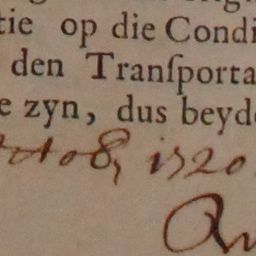 tie op die Condi
den Tranſporta
e zyn, dus beyde
1720